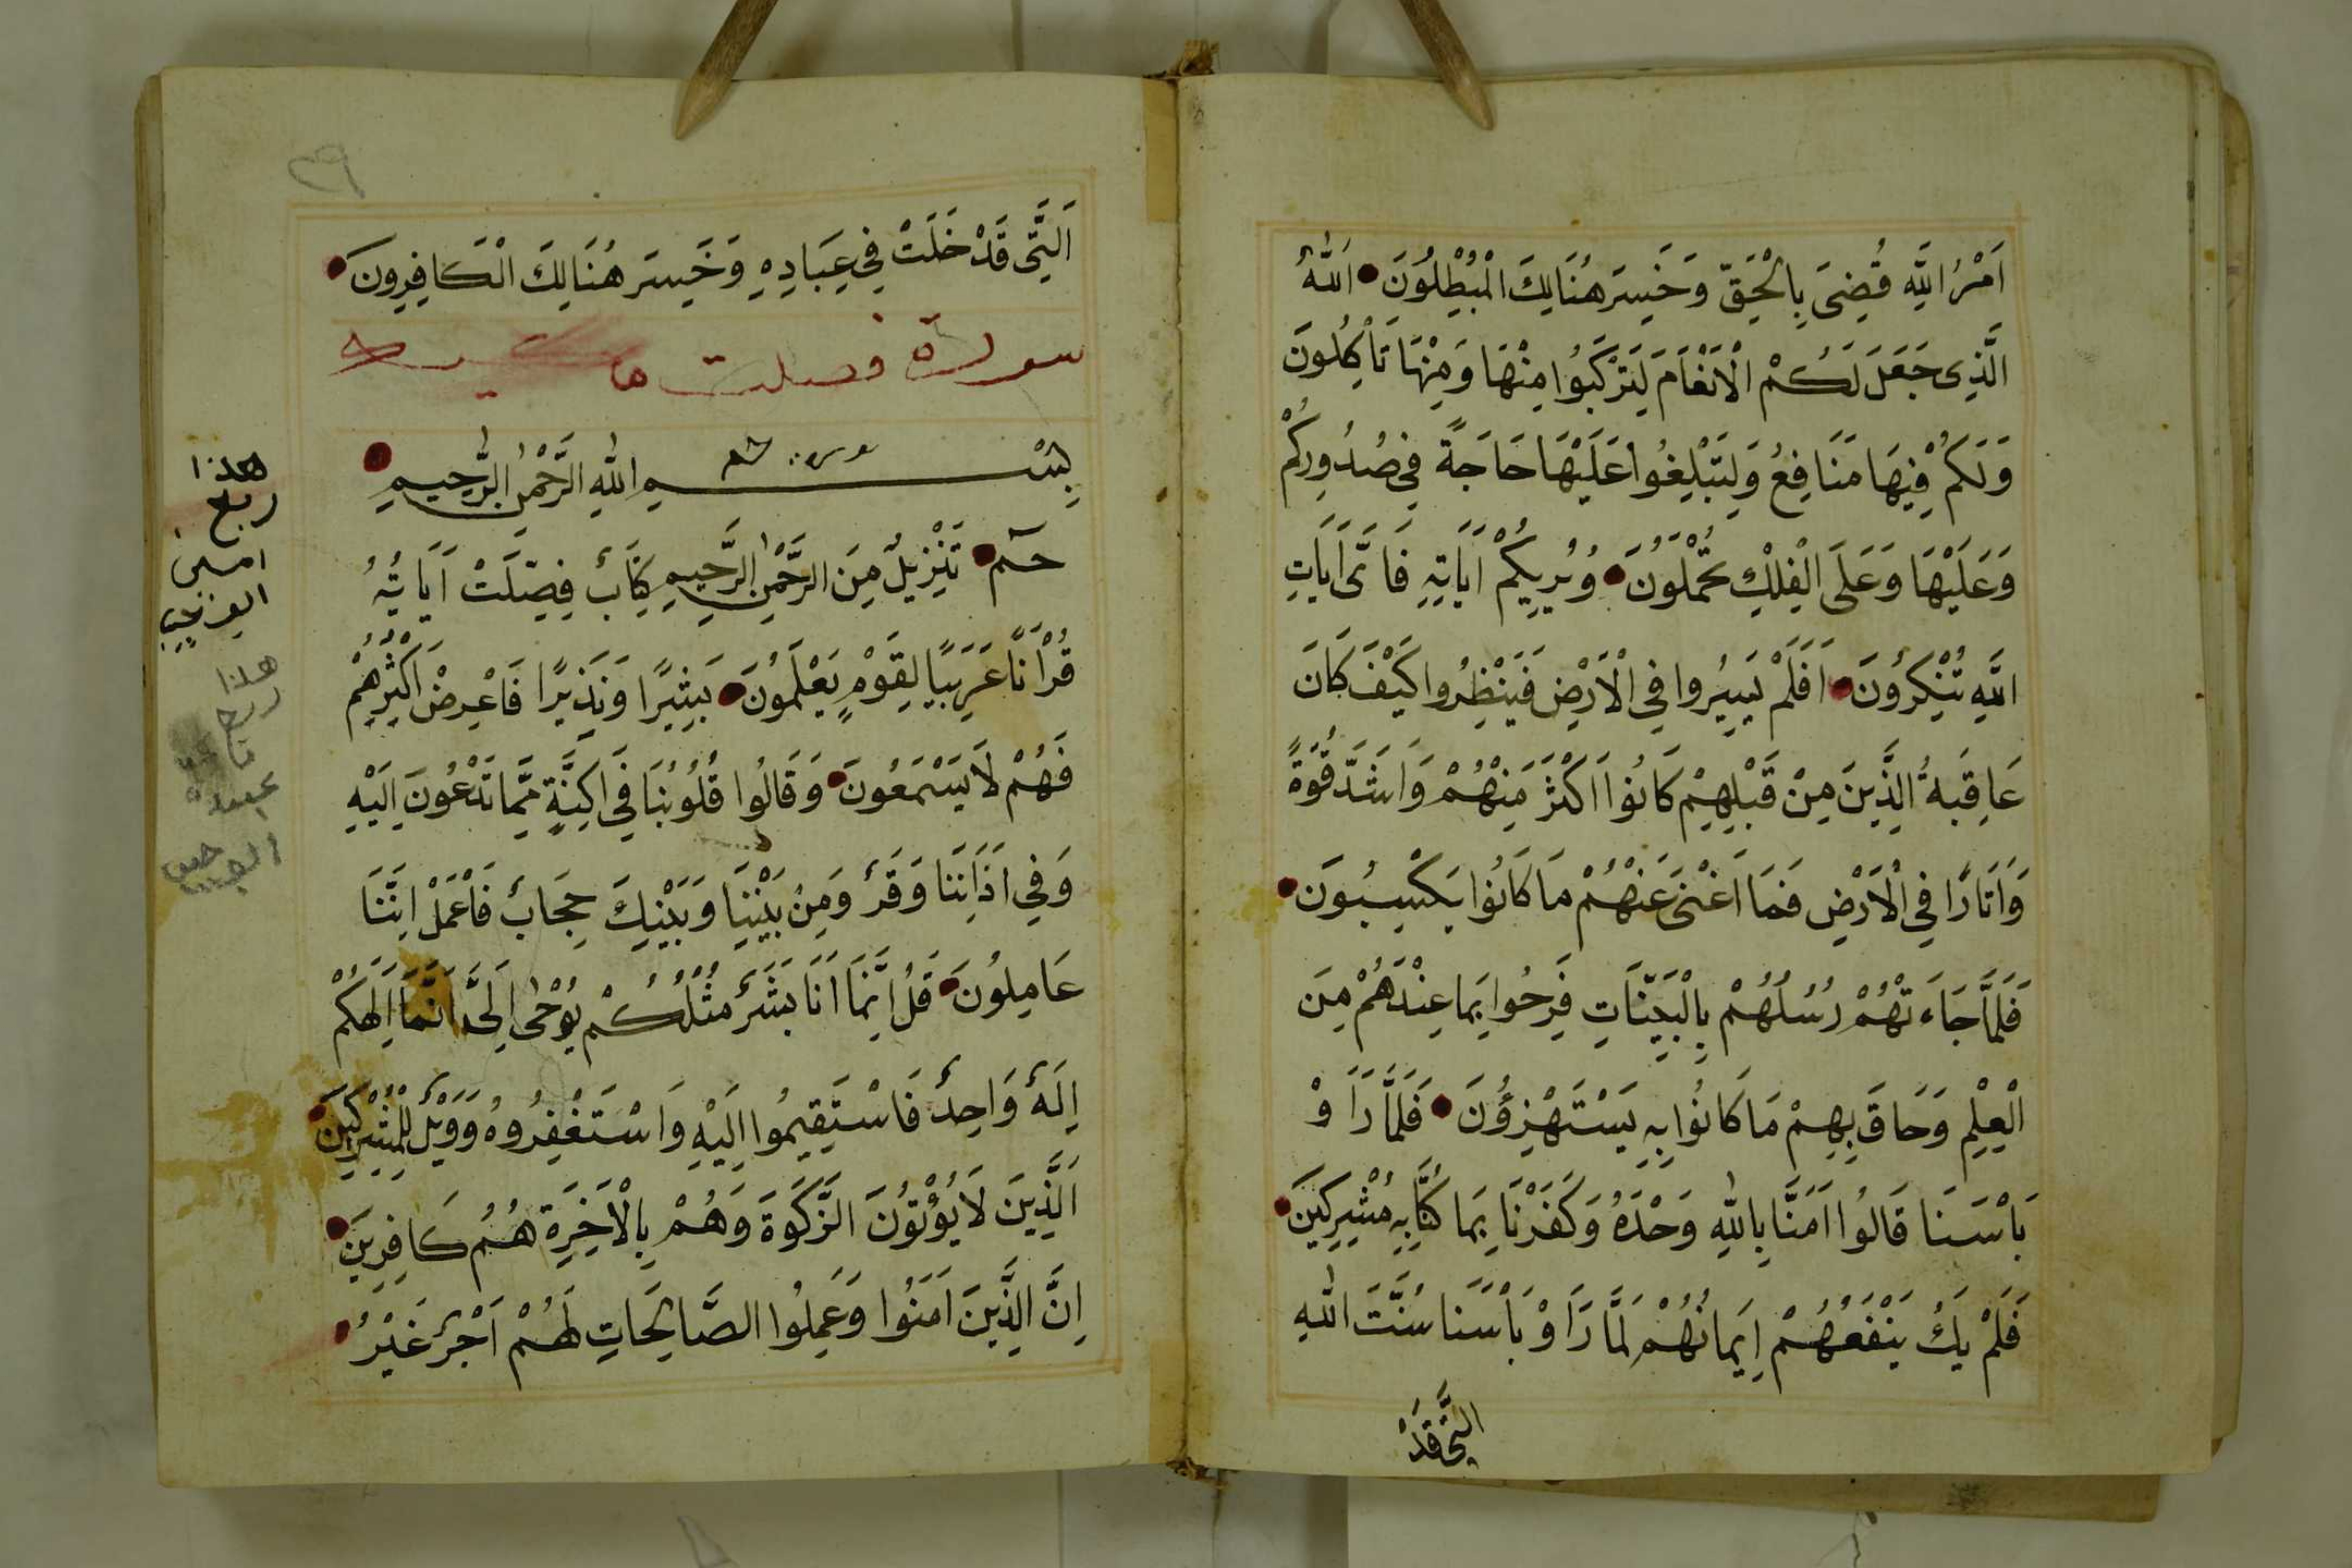 اَمْرُ اللّٰهِ قُضِىَ بِالْحَقِّ وَخَسِرَ هُنَالِكَ الْمُبْطِلُونَ اَللّٰهُ
الَّذِى جَعَلَ لَكُمْ الْاَنْعَامَ لِتَرْكَبُوا مِنْهَا وَمِنْهَا تَاْكُلُونَ
وَلَكُمْ فِيهَا مَنَافِعُ وَلِتَبْلِغُوا عَلَيْهَا حَاجَةً فِى صُدُورِكُمْ
وَعَلَيْهَا وَعَلَى الْفِلْكِ تُحْمَلُونَ وَيُرِيكُمْ اَيَاتِهِ فَاَىَّ اَيَاتِ
اللّٰهِ تُنْكِرُونَ اَفَلَمْ يَسِيرُوا فِى الْاَرْضِ فَيَنْظُرُوا كَيْفَ كَانَ
عَاقِبَةُ الَّذِينَ مِنْ قَبْلِهِمْ كَانُوا اَكْثَرَ مِنْهُمْ وَاَشَدَّ قُوَّةً
وَاَثَارًا فِى الْاَرْضِ فَمَا اَغْنَى عَنْهُمْ مَا كَانُوا يَكْسِبُونَ
فَلَمَّا جَاءَتْهُمْ رُسُلُهُمْ بِالْبَيِّنَاتِ فَرِحُوا بِمَا عِنْدَهُمْ مِنَ
الْعِلْمِ وَحَاقَ بِهِمْ مَا كَانُوا بِهِ يَسْتَهْزِؤُنَ فَلَمَّا رَاَوْ
بَاْسَنَا قَالُوا اَمَنَّا بِاللّٰهِ وَحْدَهُ وَكَفَرْنَا بِمَا كُنَّا بِهِ مُشْرِكِينَ
فَلَمْ يَكُ يَنْفَعُهُمْ اِيمَانُهُمْ لَمَّا رَاَوْ بَاْسَنَا سُنَّتَ اللّٰهِ
الَّتِى قَدْ
٣٩
اَلَّتِى قَدْ خَلَتْ فِى عِبَادِهِ وَخَسِرَ هُنَالِكَ الْكَافِرُونَ
سورة فصلت
بِسْمِ اللّٰهِ الرَّحْمٰنِ الرَّحِيمِ
حٰمٓ تَنْزِيلٌ مِنَ الرَّحْمٰنِ الرَّحِيمِ كِتَابٌ فُصِّلَتْ اَيَاتُهُ
قُرْاَنًا عَرَبِيًّا لِقَوْمٍ يَعْلَمُونَ بَشِيرًا وَنَذِيرًا فَاَعْرَضَ اَكْثَرُهُمْ
فَهُمْ لَا يَسْمَعُونَ وَقَالُوا قُلُوبُنَا فِى اَكِنَّةٍ مِمَّا تَدْعُونَ اِلَيْهِ
وَفِى اَذَانِنَا وَقَرٌ وَمِنْ بَيْنِنَا وَبَيْنِكَ حِجَابٌ فَاعْمَلْ اِنَّنَا
عَامِلُونَ قُلْ اِنَّمَا اَنَا بَشَرٌ مِثْلُكُمْ يُوْحٰى اِلَىَّ اَنَّمَا اِلَهُكُمْ
اِلَهٌ وَاحِدٌ فَاسْتَقِيمُوا اِلَيْهِ وَاسْتَغْفِرُوهُ وَوَيْلٌ لِلْمُشْرِكِينَ
اَلَّذِينَ لَا يُؤْتُونَ الزَّكَوةَ وَهُمْ بِالْاَخِرَةِ هُمْ كَافِرِينَ
اِنَّ الَّذِينَ اَمَنُوا وَعَمِلُوا الصَّالِحَاتِ لَهُمْ اَجْرٌ غَيْرُ
هذا
ربع
هذا
ربع